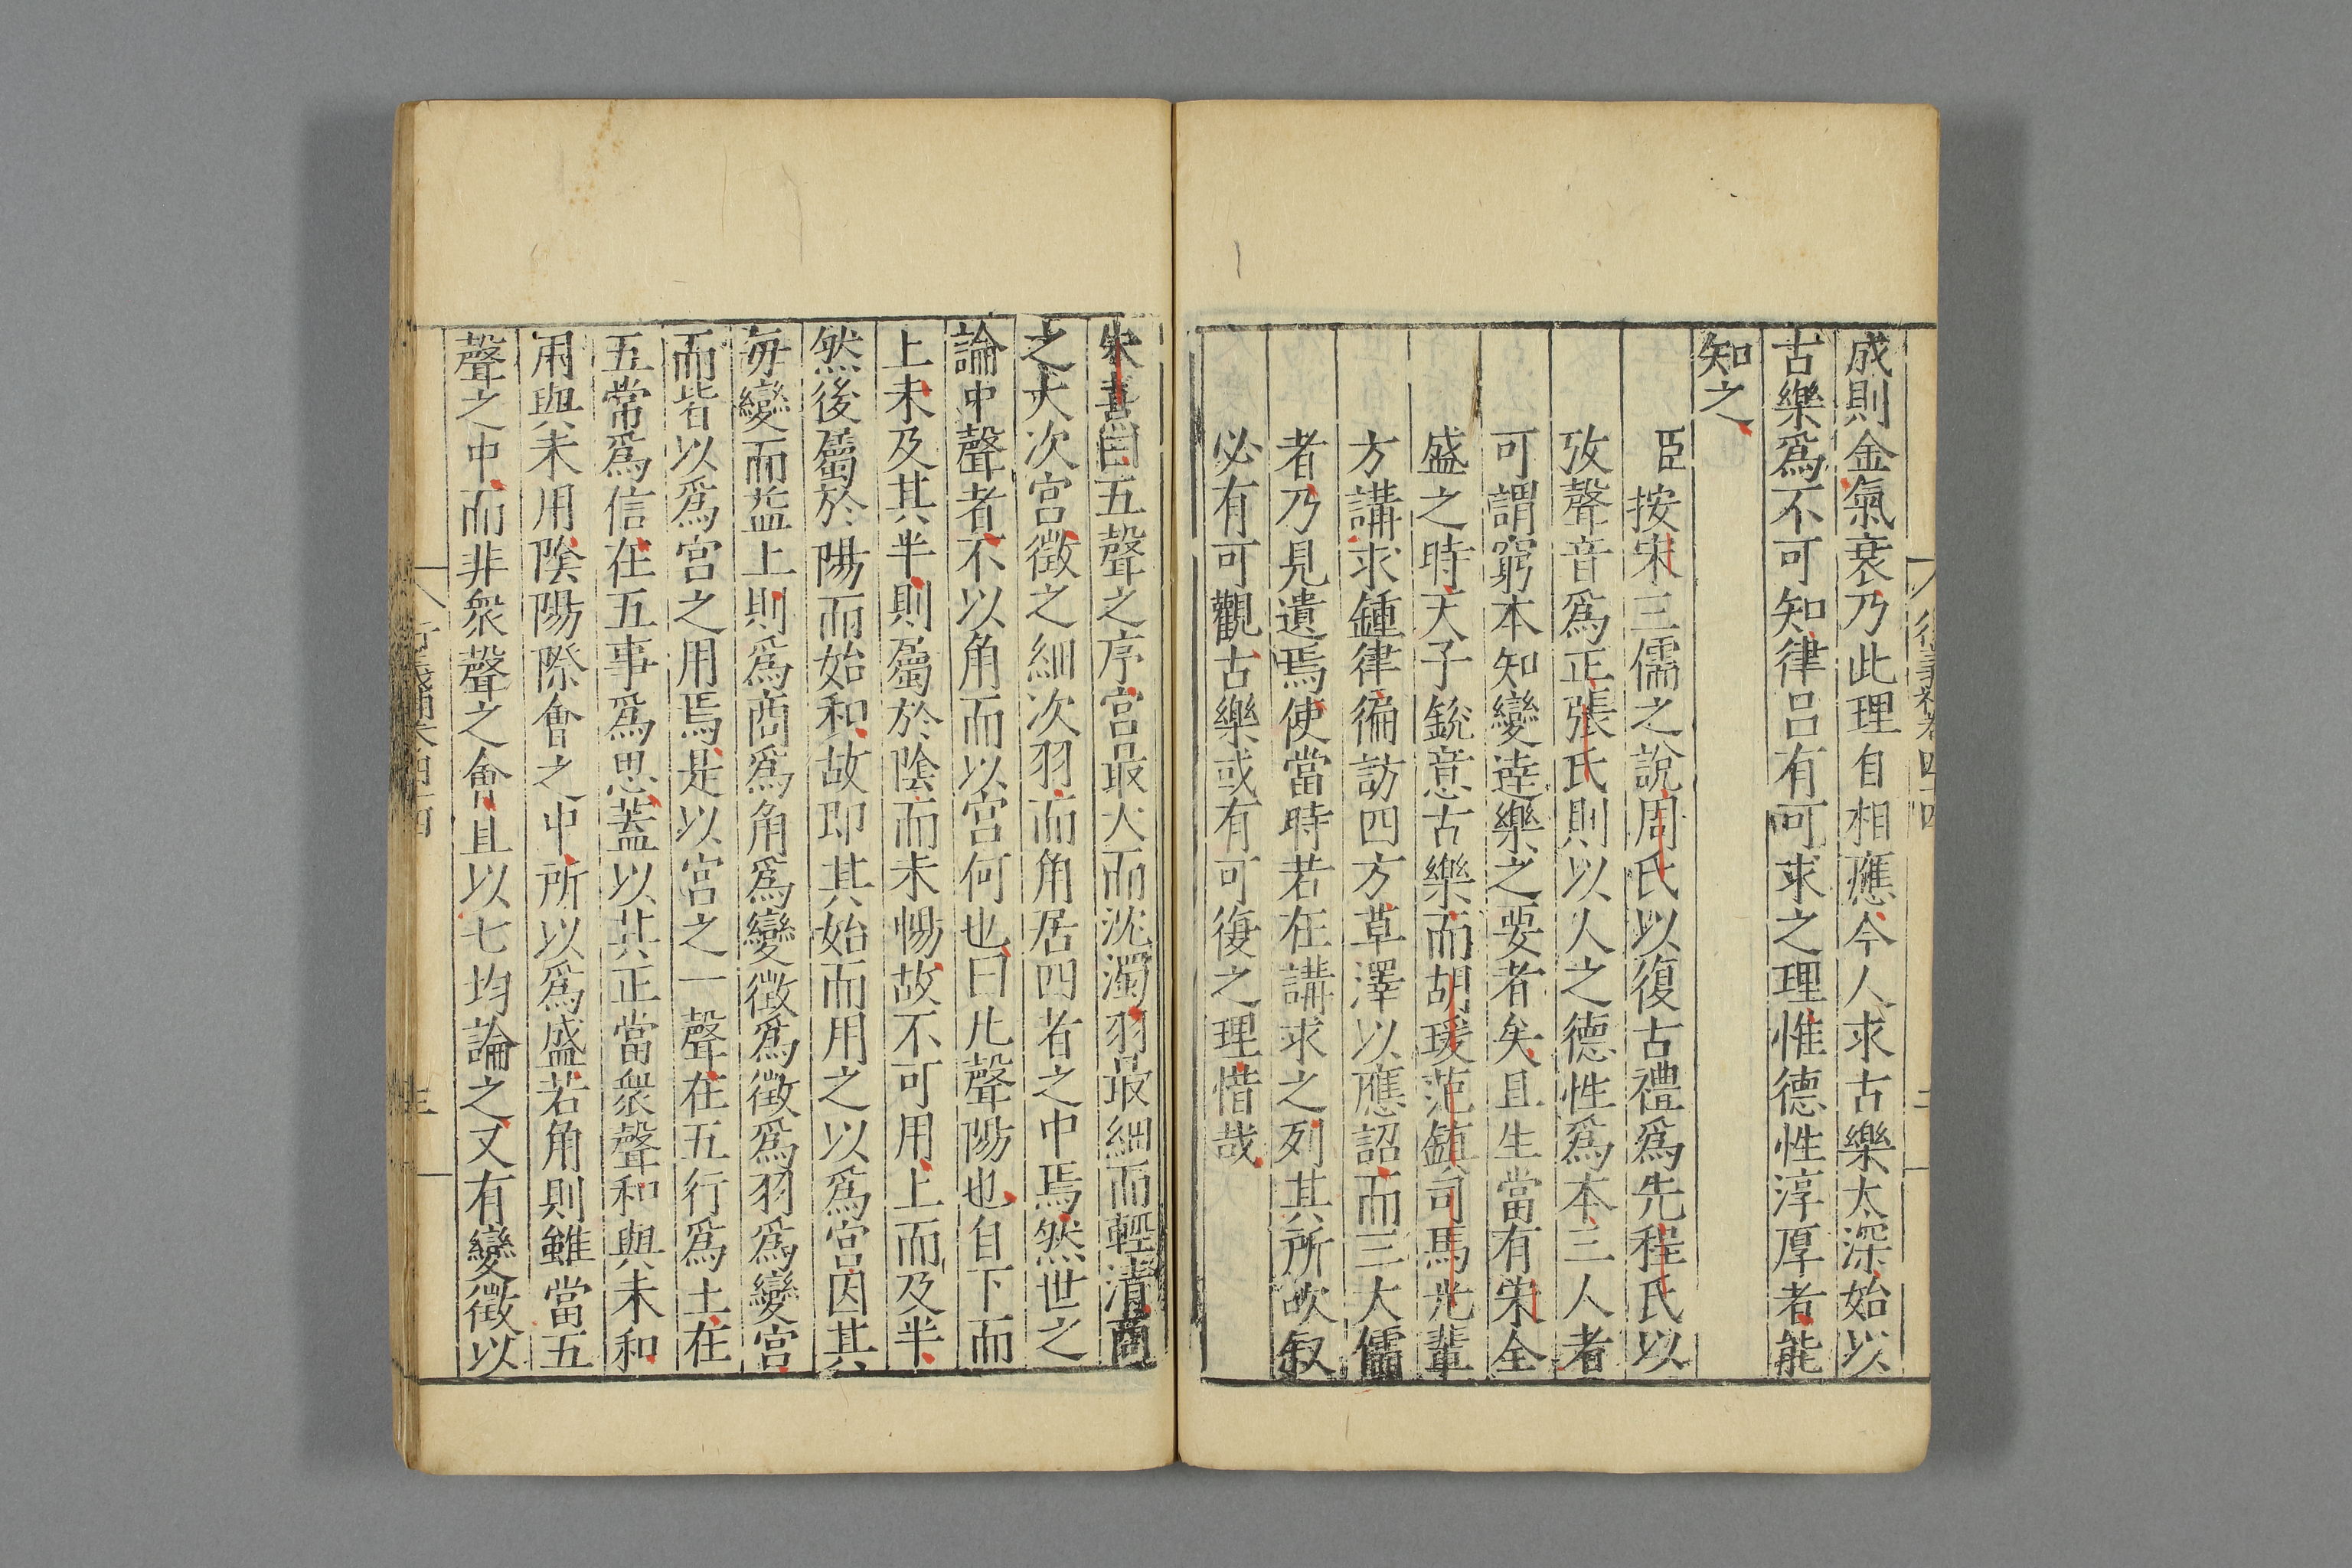 成則金氣衰乃此理自相應今人求古樂太深始以
古樂爲不可知律呂有可求之理惟德性淳厚者能
知之
臣按宋三儒之說周氏以復古禮爲先程氏以
攷聲音爲正張氏則以人之德性爲本三人者
可謂窮本知變達樂之要者矣且生當有宋全
盛之時天子銳意古樂而胡瑗范鎮司馬光輩
方講求鍾律徧訪四方草澤以應詔而三大儒
者乃見遺焉使當時若在講求之列其所故敍
必有可觀古樂或有可復之理惜哉
朱熹曰五聲之序宮最大而沈濁羽最細而輕清商
之大次宮徵之細次羽而角居四者之中焉然世之
論中聲者不以角而以宮何也曰凡聲陽也自下而
上未及其半則屬於陰而未暢故不可用上而及半
然後屬於陽而始和故即其始而用之以爲宮因其
每變而益上則爲商爲角爲變徵爲徵爲羽爲變宮
而皆以爲宮之用焉是以宮之一聲在五行爲土在
五常爲信在五事爲思蓋以其正當衆聲和與未和
用與未用陰陽際會之中所以爲盛若角則雖當五
聲之中而非衆聲之會且以七均論之又有變徵以